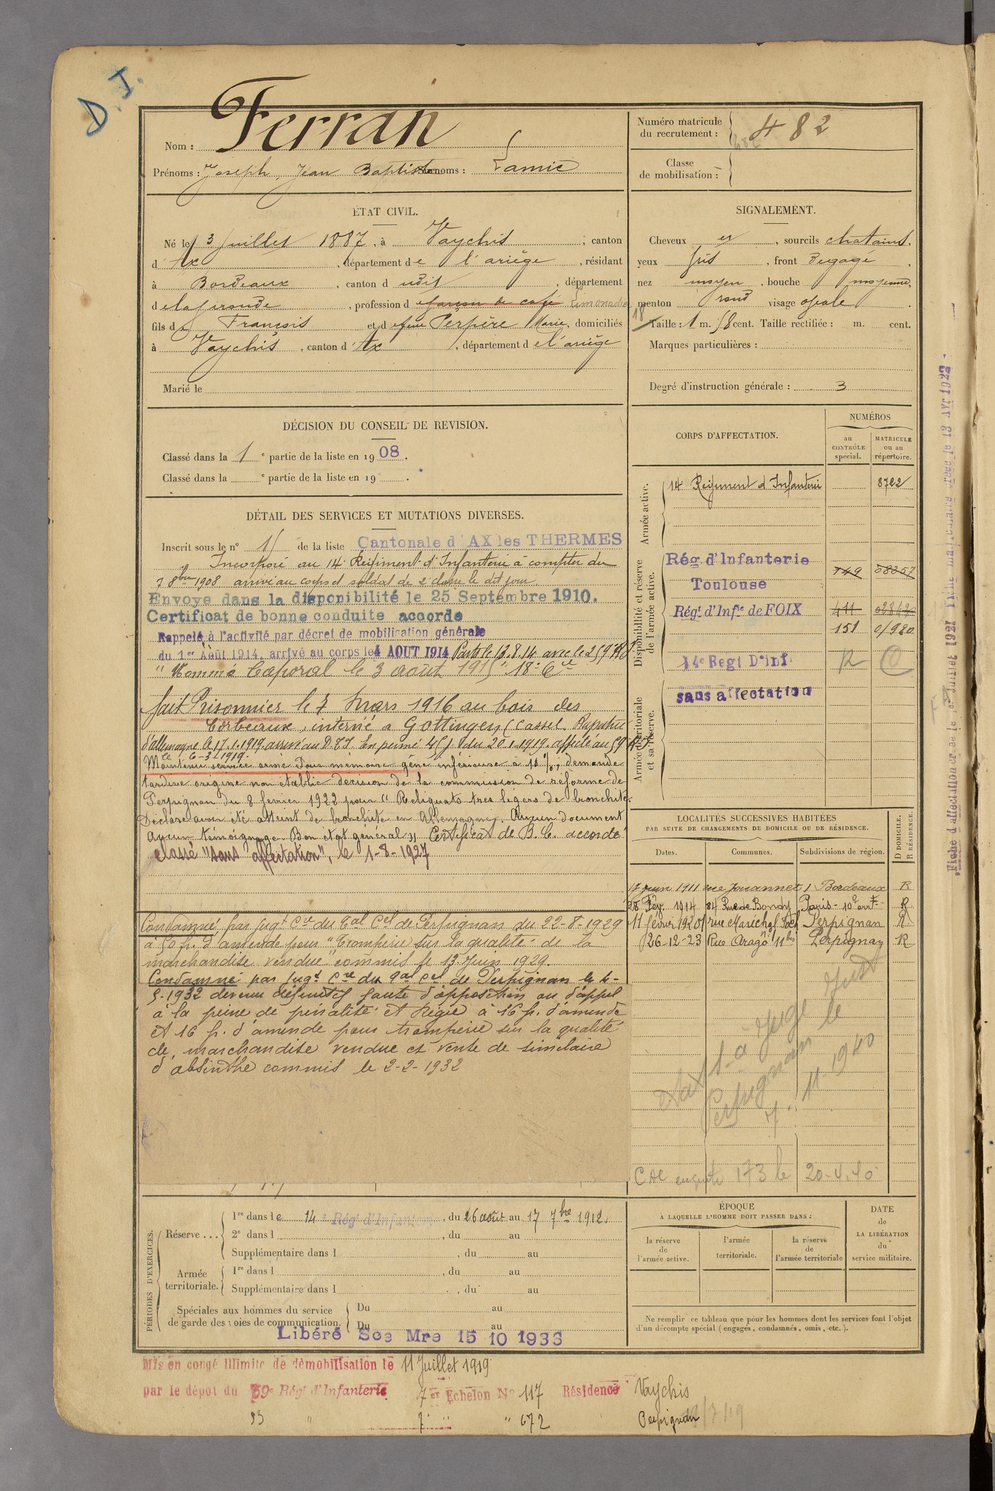 D. I.
Nom : Ferran
Prénoms : Joseph, Jean Baptiste
Surnoms : Lamic
Numéro matricule du recrutement : 482
Classe de mobilisation :
ÉTAT CIVIL.
Né le 3 juillet 1887, à Vaychis, canton
d'Ax, département de l'ariège, résidant
à Bordeaux, canton d udit, département
d e la gironde, profession d e garçon de café Limonadier
fils d e François et d e feue Perpère Marie, domiciliés
à Vaychis, canton d'Ax, département d e l'ariège
Marié le
SIGNALEMENT.
Cheveux et, sourcils chatains.
yeux gris, front dégagé,
nez moyen, bouche moyenne,
menton rond visage ovale
Taille : 1 m. 58 cent. Taille rectifiée : m. cent.
Marques particulières :
Degré d'instruction générale : 3
DÉCISION DU CONSEIL DE REVISION.
Classé dans la 1e partie de la liste en 1908.
Classé dans la e partie de la liste en 19 .
DÉTAIL DES SERVICES ET MUTATIONS DIVERSES.
Inscrit sous le n° 15 de la liste Cantonale d'AX les THERMES
Incorporé au 14e Régiment d'Infanterie à compter du
7 8bre 1908 arrivé au corps et soldat de 2e classe le dit jour
Envoyé dans la disponibilité le 25 Septembre 1910.
Certificat de bonne conduite accordé
Rappelé à l'activité par décret de mobilisation générale
du 1er Août 1914, arrivé au corps le 4 AOUT 1914
Nommé Caporal le 3 août 1915 18e Cie
fait Prisonnier le 7 Mars 1916 au bois des
Corbeaux, interné à Gottingen (Cassel. Rapatrié
d'allemagne le 17.1.1919 arrivé au D.
6-3-1919.
Maintenu service armé Pour mémoire gêne inférieure à 10 %, demande
tardive origine non établie décision de la commission de réforme de
Perpignan du 8 fevrier 1922 pour "Reliquats très légers de bronchite
déclare avoir été atteint de bronchite en Allemagne. Aucun document
aucun témoignage. Bon état général". Certificat de B. C. accordé
classé "sans affectation", le 1-8-1927
Condamné par jugt Cre du Gal Cel de Perpignan du 22-8-1929
à 50 fr. d'amende pour "Tromperie sur la qualité de la
marchandise vendue" commis le 13 Juin 1929.
Condamné par Jugt Cre du Gal Cel de Perpignan le 6-
5-1932 devenu définitif faute d'opposition ou d'appel
à la peine de pénalité et Régie à 16 fr. d'amende
et 16 fr. d'amende pour tromperie sur la qualité
de marchandise vendue et vente de similaire
d'absinthe commis le 2-2-1932
CORPS D'AFFECTATION.
NUMÉROS
au CONTRÔLE spécial.
MATRICULE ou au répertoire.
Armée active.
14 Régiment d'Infanterie 8722
Disponibilité et réserve de l'armée active.
Rég. d'Infanterie Toulouse 749 58257
Régt d'Infie de FOIX 411
151 0/980
14e Regt D'inf R
sans affectation
Armée territoriale et sa réserve.
LOCALITÉS SUCCESSIVES HABITÉES
PAR SUITE DE CHANGEMENTS DE DOMICILE OU DE RÉSIDENCE.
Dates. Communes. Subdivisions de région. D DOMICILE. R RÉSIDENCE.
17 juin 1911 rue Jouannet 1 Bordeaux R
28 Fév. 1914 84 Rue de Bondy Paris - 10e arrt R
11 février 1920 rue Maréchal Foch Perpignan R
26-12-23 Rue Arago 11bis Perpignan R
à Juge
Perpignan le
7-11-1940
173 le 20.4.40
PÉRIODES D'EXERCICES.
Réserve ... 1re dans le 14e Rég. d'Infanterie, du 26 août au 17 7bre 1912.
2e dans l , du au
Supplémentaire dans l , du au
Armée territoriale. 1re dans l , du au
Supplémentaire dans l , du au
Spéciales aux hommes du service de garde des voies de communication. Du au
Du au
Libéré Sce Mre 15 10 1936
ÉPOQUE
À LAQUELLE L'HOMME DOIT PASSER DANS :
la réserve de l'armée active.
l'armée territoriale.
la réserve de l'armée territoriale
DATE DE LA LIBÉRATION du service militaire.
Ne remplir ce tableau que pour les hommes dont les services font l'objet
d'un décompte spécial (engagés, condamnés, omis, etc.).
Mis en congé illimité de démobilisation le 11 Juillet 1919
par le dépôt du 59e Rég. d'Infanterie 7e Echelon N° 117 Résidence Vaychis
" " 672 Perpignan